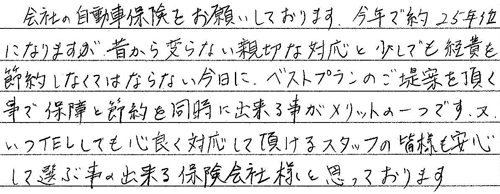 会社の自動車保険をお願いしております。今年で約25年位
になりますが昔から変らない親切な対応と少しでも経費を
節約しなくてはならない今日に、ベストプランのご提案を頂く
事で保障と節約を同時に出来る事がメリットの一つです。又、
いつTELしても心良く対応して頂けるスタッフの皆様も安心
して選ぶ事の出来る保険会社様と思っております